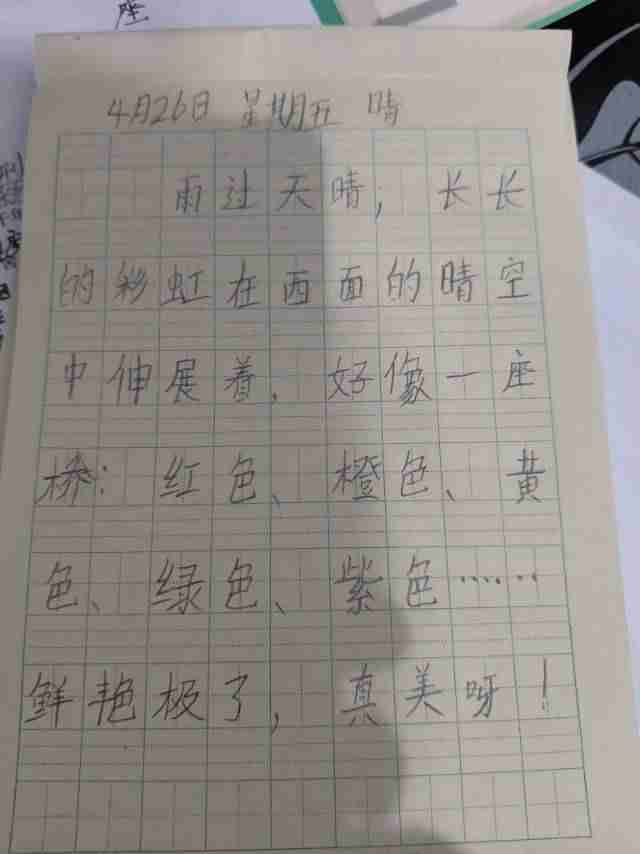 座
4月26日 星期五 晴
雨过天晴，长长
的彩虹在西面的晴空
中伸展着，好像一座
桥：红色、橙色、黄
色、绿色、紫色……
鲜艳极了，真美呀！